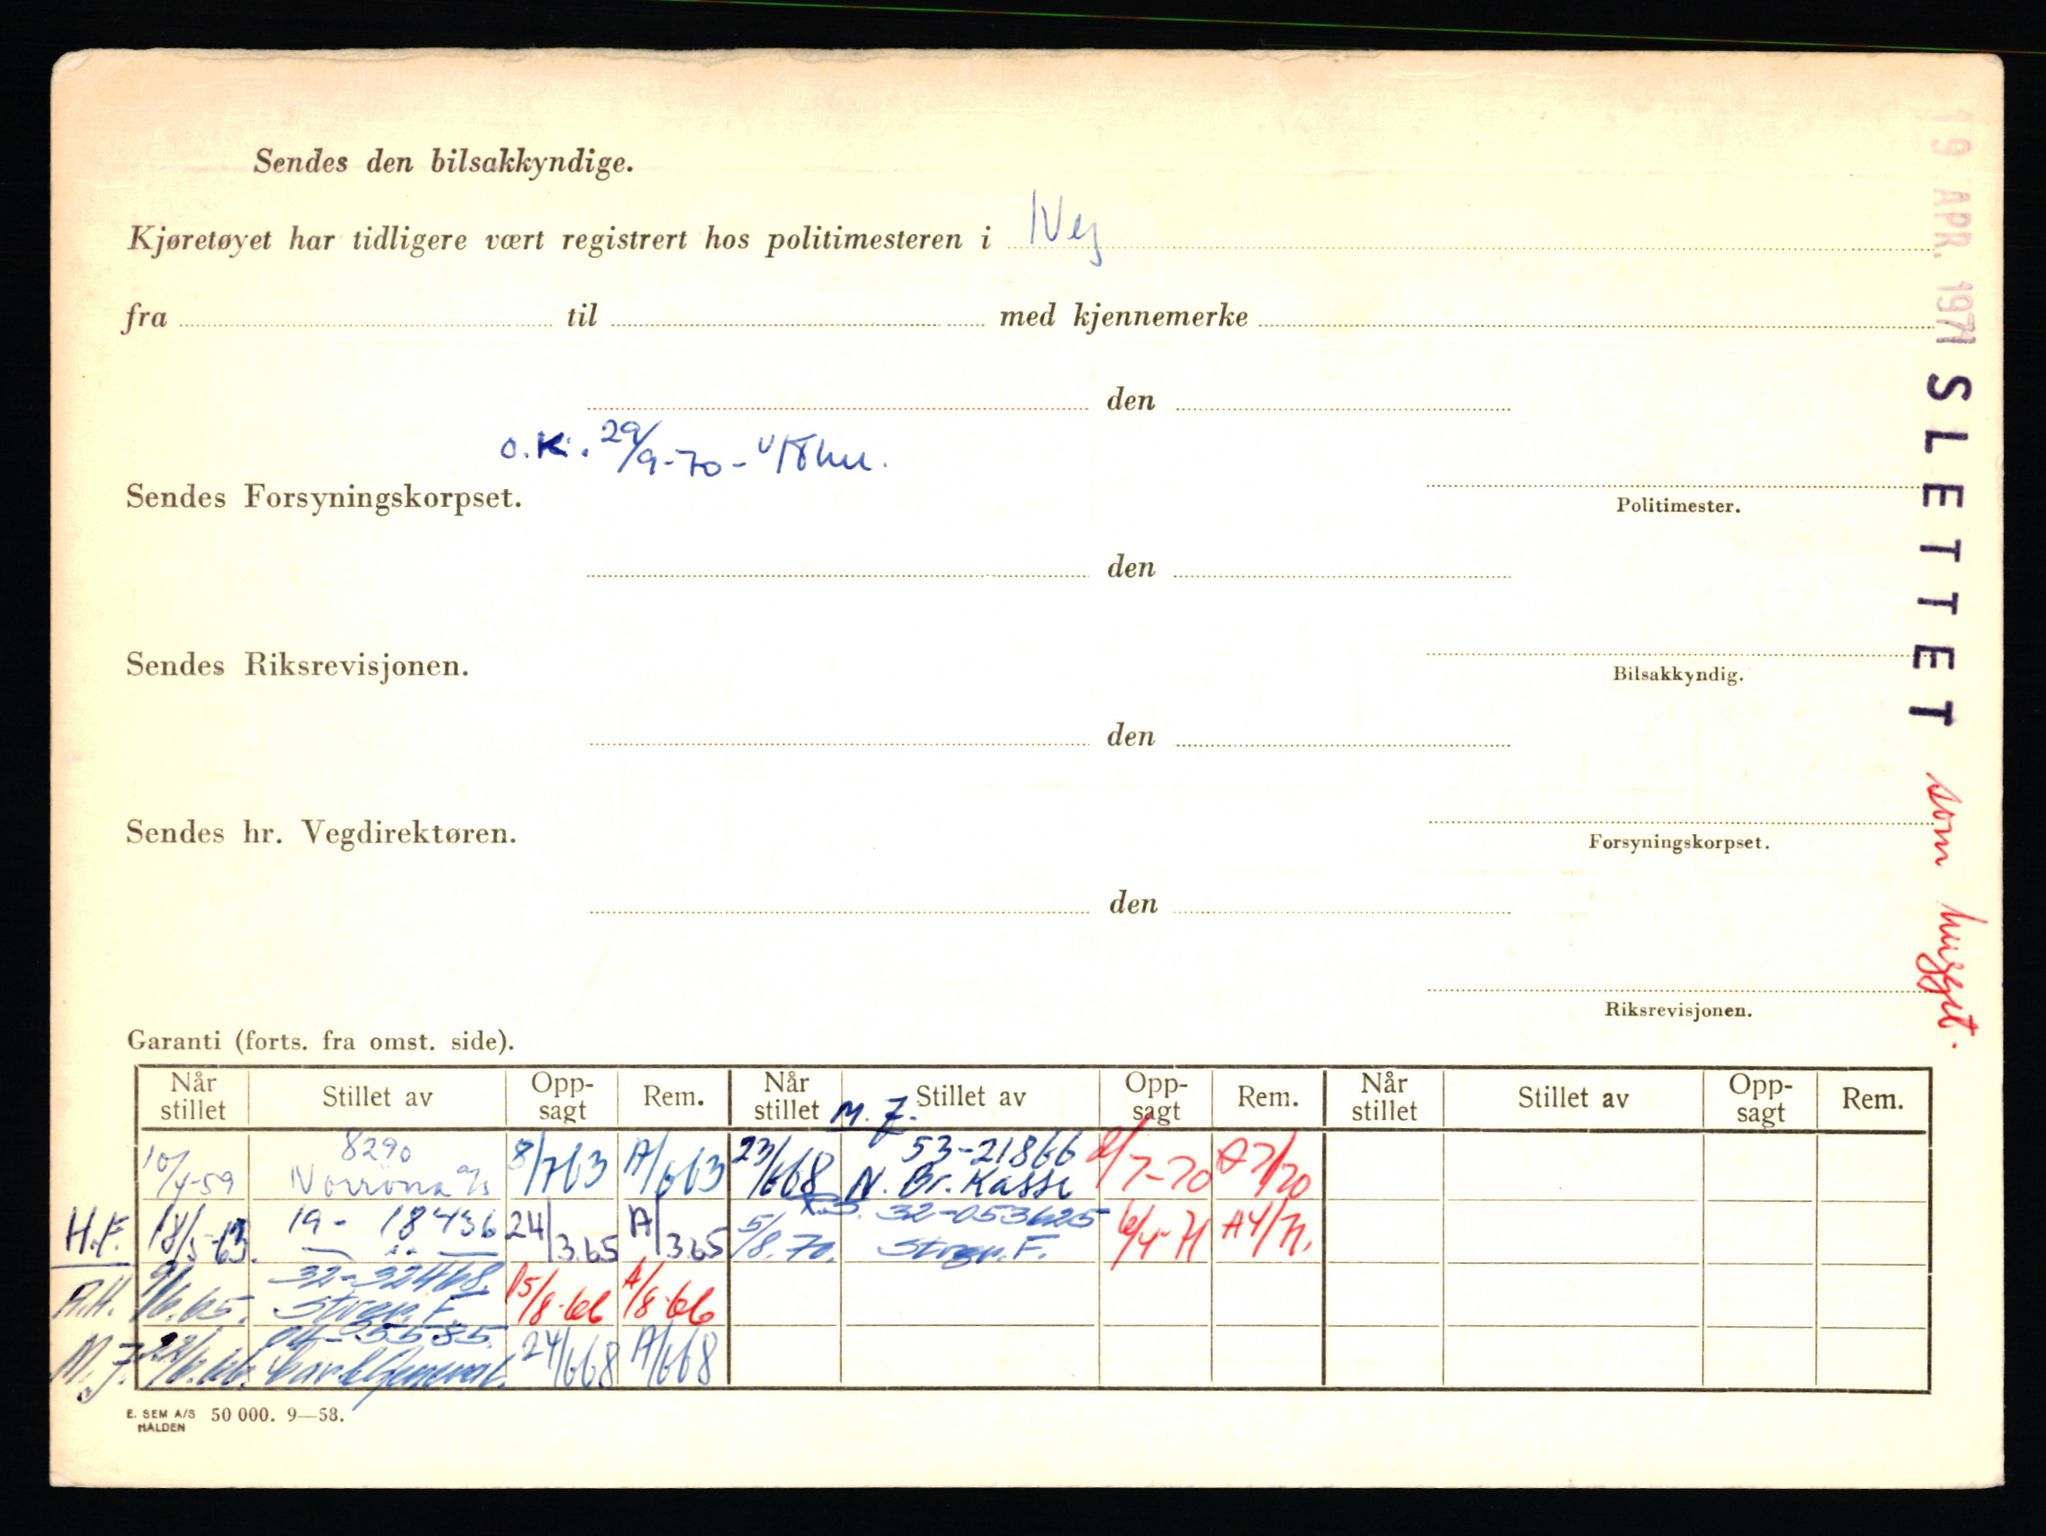 Sendes den bilsakkyndige.
Kjøretøyet har tidligere vært registrert hos politimesteren i Nei
fra til med kjennemerke
den
o.K. 29/9-70 -
Sendes Forsyningskorpset.
Politimester.
den
Sendes Riksrevisjonen.
Bilsakkyndig.
den
Sendes hr. Vegdirektøren.
Forsyningskorpset.
den
Riksrevisjonen.
19 APR. 1971 SLETTET som hugget.
Garanti (forts. fra omst. side).
Når stillet Stillet av Opp-sagt Rem. Når stillet Stillet av Opp-sagt Rem. Når stillet Stillet av Opp-sagt Rem.
M. F.
8290 53-21866
10/4-59 Norrøna A/S 8/763 A/663 23/668 N. Br. Kasse /7-70 A7/70
H.F. 18/5-63. 19- 18436 24/3.65 A/3.65 5/8.70. 32-053625 6/4-71 A4/71.
Storbr. F.
A.H. 9/6.65. 32-32468. 15/8-66 A/8-66
Storbr. F.
M. F. 22/6.66. 06-35585. 24/668 A/668
E. SEM A/S HALDEN 50 000. 9—58.